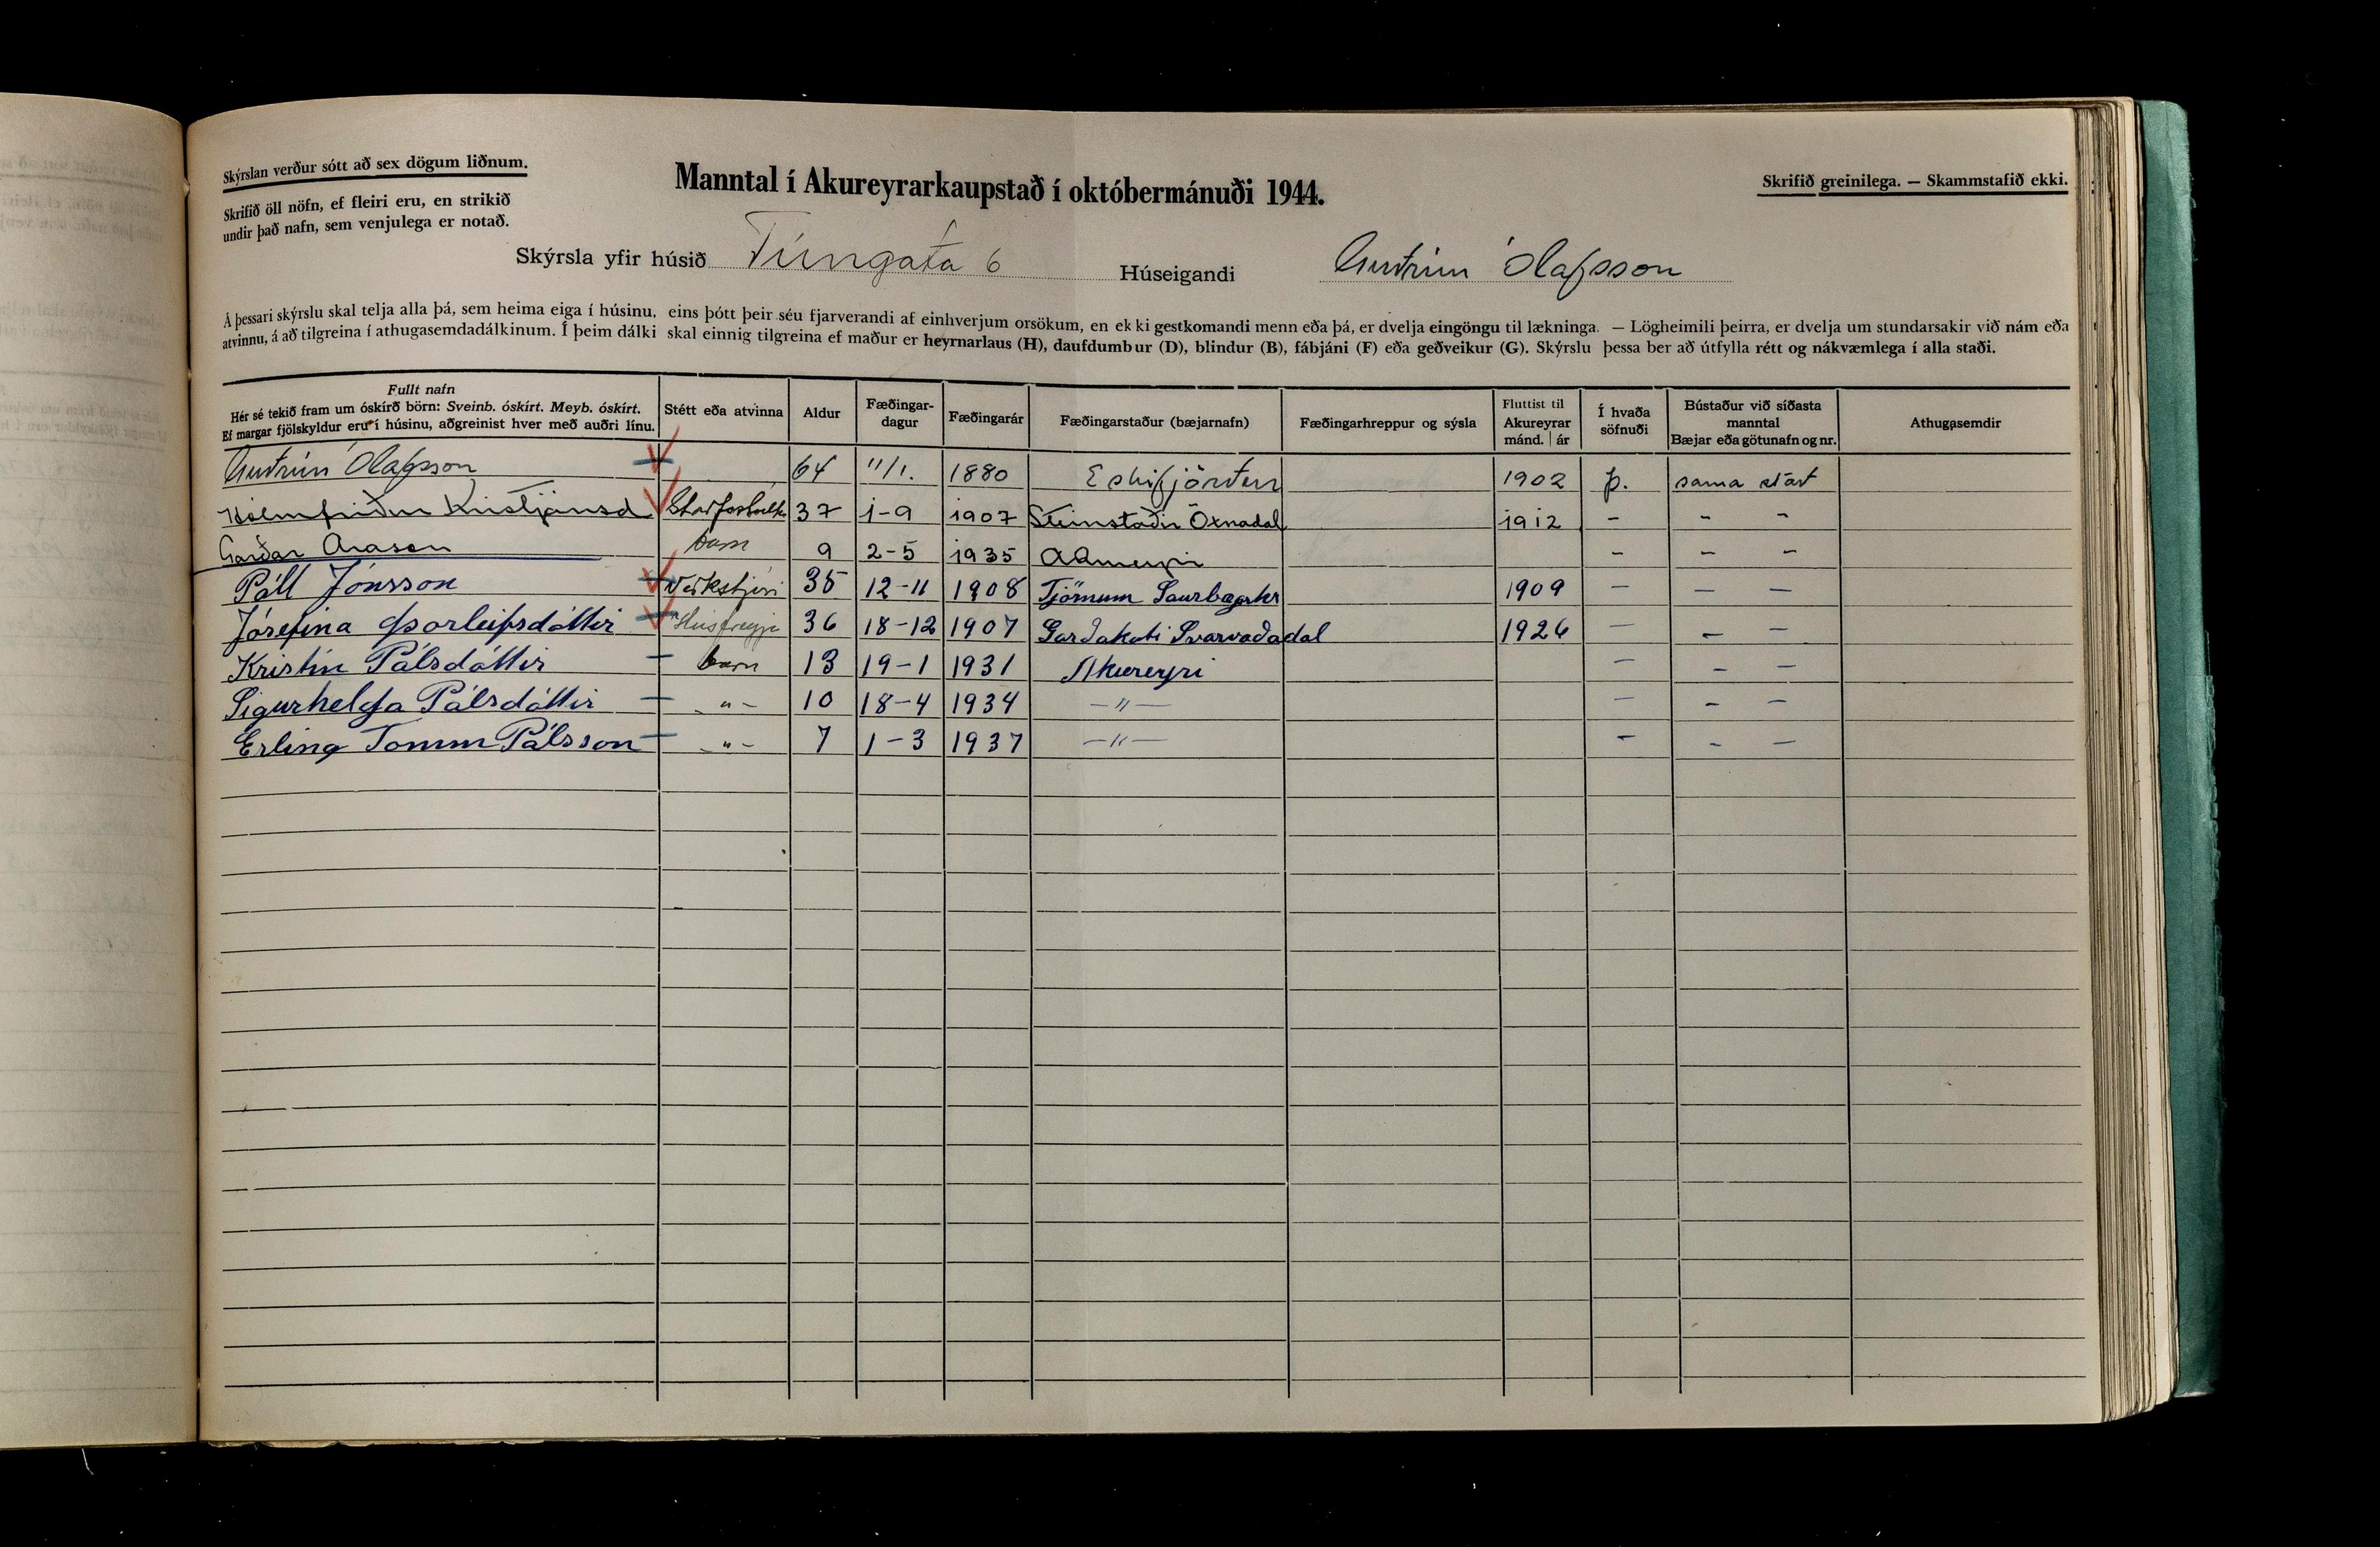 Skýrslan verður sótt að sex dögum liðnum.
Skrifið öll nöfn, ef fleiri eru, en strikið
undir það nafn, sem venjulega er notað.
Manntal í Akureyrarkaupstað í októbermánuði 1944.
Skrifið greinilega. — Skammstafið ekki.
Skýrsla yfir húsið Túngata 6 Húseigandi Guðrún Ólafsson
Á þessari skýrslu skal telja alla þá, sem heima eiga í húsinu, eins þótt þeir séu fjarverandi af einhverjum orsökum, en ekki gestkomandi menn eða þá, er dvelja eingöngu til lækninga. — Lögheimili þeirra, er dvelja um stundarsakir við nám eða
atvinnu, á að tilgreina í athugasemdadálkinum. Í þeim dálki skal einnig tilgreina ef maður er heyrnarlaus (H), daufdumbur (D), blindur (B), fábjáni (F) eða geðveikur (G). Skýrslu þessa ber að útfylla rétt og nákvæmlega í alla staði.
Fullt nafn
Hér sé tekið fram um óskírð börn: Sveinb. óskírt. Meyb. óskírt.
Ef margar fjölskyldur eru í húsinu, aðgreinist hver með auðri línu.
Stétt eða atvinna
Aldur
Fæðingar-
dagur
Fæðingarár
Fæðingarstaður (bæjarnafn)
Fæðingarhreppur og sýsla
Fluttist til
Akureyrar
mánd. | ár
Í hvaða
söfnuði
Bústaður við síðasta
manntal
Bæjar eða götunafn og nr.
Athugasemdir
Guðrún Ólafsson 64 11/1. 1880 Eskifjörður 1902 þ. sama stað
Hólmfríður Kristjánsd 37 1-9 1907 Steinstaðir Öxnadal 1912 - - -
Garðar Arason barn 9 2-5 1935 Akureyri - - -
Páll Jónsson Verkstjóri 35 12-11 1908 Tjörnum Saurbæjarhr 1909 — — —
Jósefína Þorleifsdóttir Húsfreyja 36 18-12 1907 Garðakoti Svarvaðadal 1926 — — —
Kristín Pálsdóttir barn 13 19-1 1931 Akureyri — — —
Sigurhelga Pálsdóttir -"- 10 18-4 1934 —"— — — —
Erling Tomm Pálsson -"- 7 1-3 1937 —"— - - —